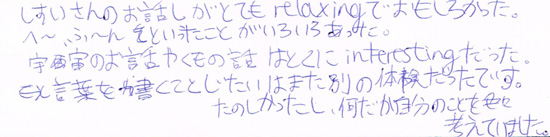 しすいさんのお話しがとてもrelaxingでおもしろかった。
へ～、ふ～んといったことがいろいろあった。
宇宙のお話やくもの話はとくにinterestingだった。
言葉を書くことじたいはまた別の体験だったです。
たのしかったし、何だか自分のことを
考えていました。